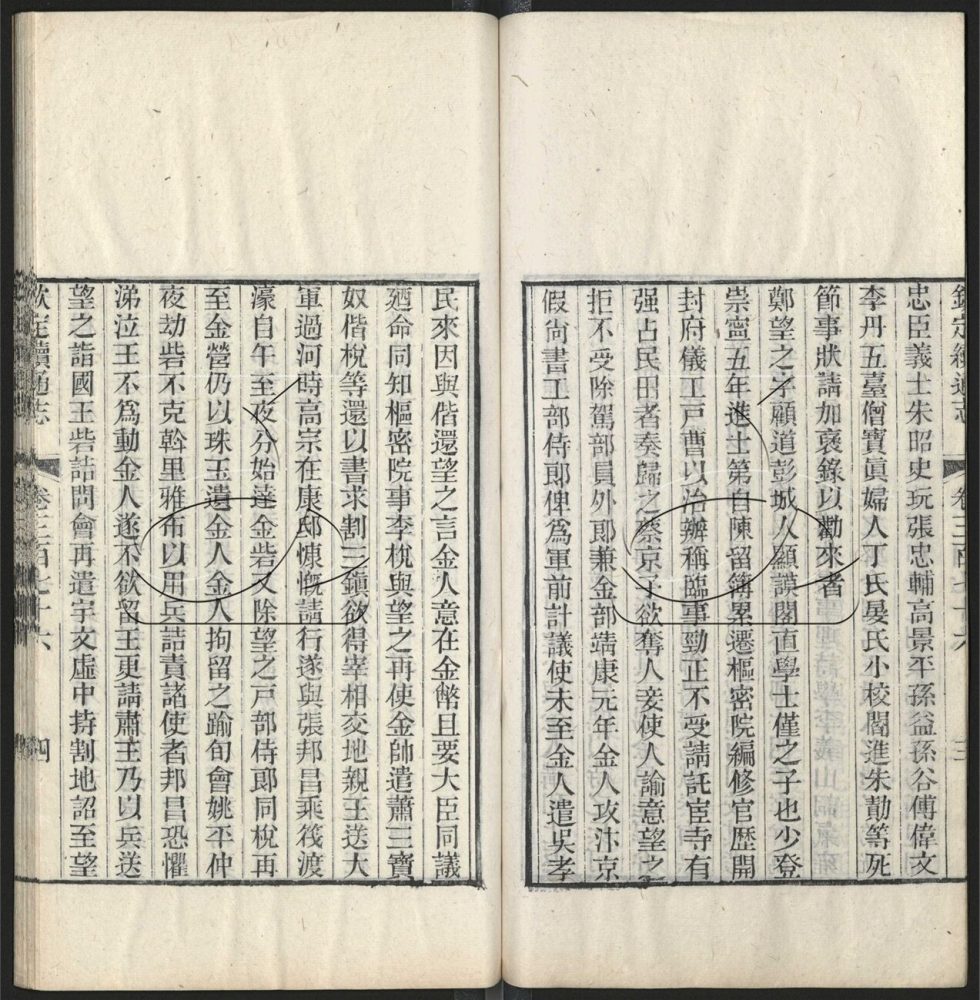 忠臣義士朱昭史玩張忠輔高景平孫益孫谷傅偉文
李丹五臺僧寶眞婦人丁氏晏氏小校閻進朱勣等死
節事狀請加褒錄以勸來者
鄭望之字顧道彭城人顯謨閣直學士僅之子也少登
崇寧五年進士第自陳留簿累遷樞密院編修官歷開
封府儀工戸曹以治辦稱臨事勁正不受請託宦寺有
强占民田者奏歸之蔡京子欲奪人妾使人諭意望之
拒不受除駕部員外郎兼金部靖康元年金人攻汴京
假尙書工部侍郎俾爲軍前計議使未至金人遣吳孝
民來因與偕還望之言金人意在金幣且要大臣同議
廼命同知樞密院事李梲與望之再使金帥遣蕭三寶
奴偕梲等還以書求割三鎭欲得宰相交地親王送大
軍過河時高宗在康邸慷慨請行遂與張邦昌乘筏渡
濠自午至夜分始達金砦又除望之戸部侍郎同梲再
至金營仍以珠玉遺金人金人拘留之踰旬會姚平仲
夜劫砦不克斡里雅布以用兵詰責諸使者邦昌恐懼
涕泣王不爲動金人遂不欲留王更請肅王乃以兵送
望之詣國王砦詰問會再遣宇文虛中持割地詔至望
欽定續通志 卷三百七十六 四